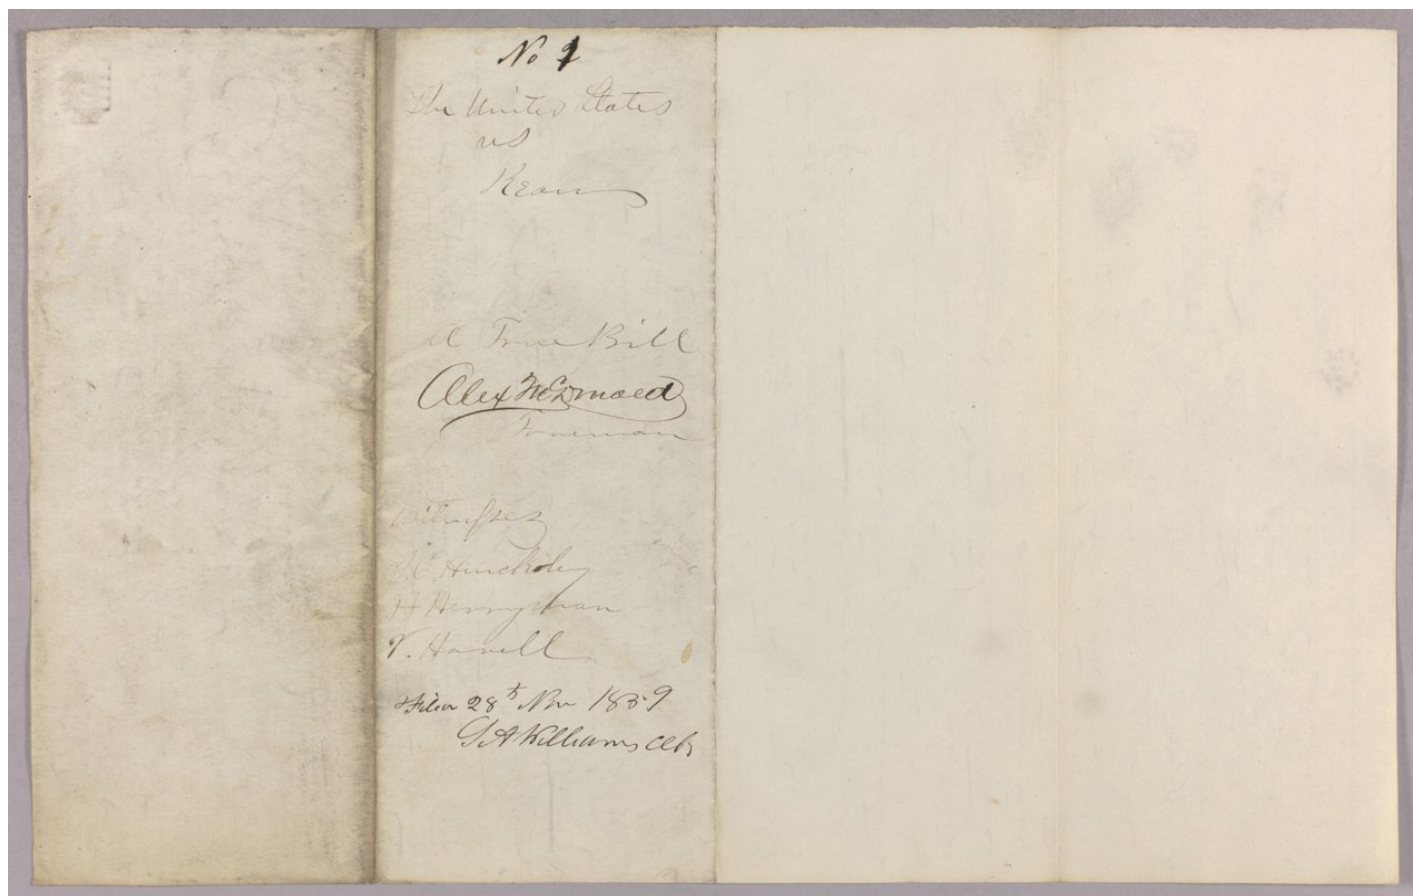 No 1
The United States
vs
Kean
A True Bill
Alex
Foreman
Witnesses
Hinckley
H Herryman
V. Havell
Filed 28th Nov 1859
Williams Clk